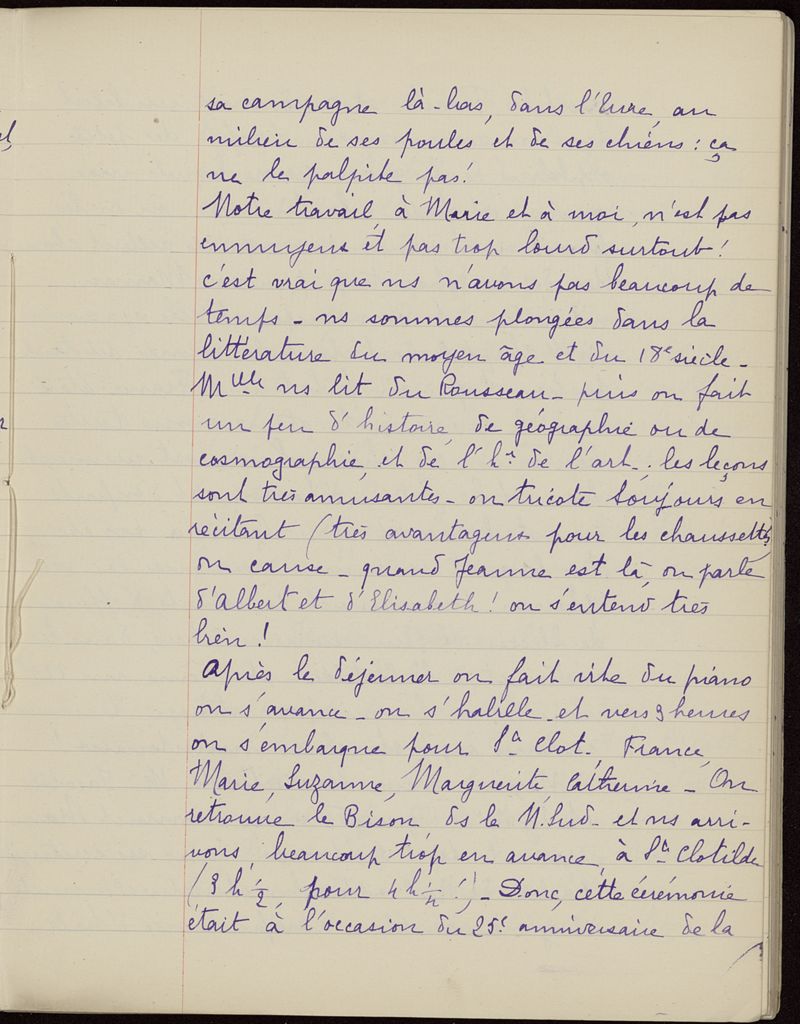 sa campagne là-bas, dans l'Eure, au
milieu de ses poules et de ses chiens : ça
ne le palpite pas!
Notre travail, à Marie et à moi, n'est pas
ennuyeux et pas trop lourd surtout!
c'est vrai que ns n'avons pas beaucoup de
temps - ns sommes plongées dans la
littérature du moyen âge et du 18e siècle -
Melle ns lit du Rousseau - puis on fait
un peu d'histoire, de géographie ou de
cosmographie, et de l'hre de l'art -; les leçons
sont très amusantes - on tricote toujours en
récitant (très avantageux pour les chaussettes)
on cause - quand Jeanne est là, on parle
d'Albert et d'Elisabeth! on s'entend très
bien!
Après le déjeuner on fait vite du piano
on s'avance - on s'habille et vers 3 heures
on s'embarque pour Ste Clot. France,
Marie, Suzanne, Marguerite Catherine - On
retrouve le Bison ds le N.Sud - et ns arri-
vons, beaucoup trop en avance, à Ste Clotilde
(3 h 1/2, pour 4 h 1/4!) - Donc, cette cérémonie
était à l'occasion du 25e anniversaire de la